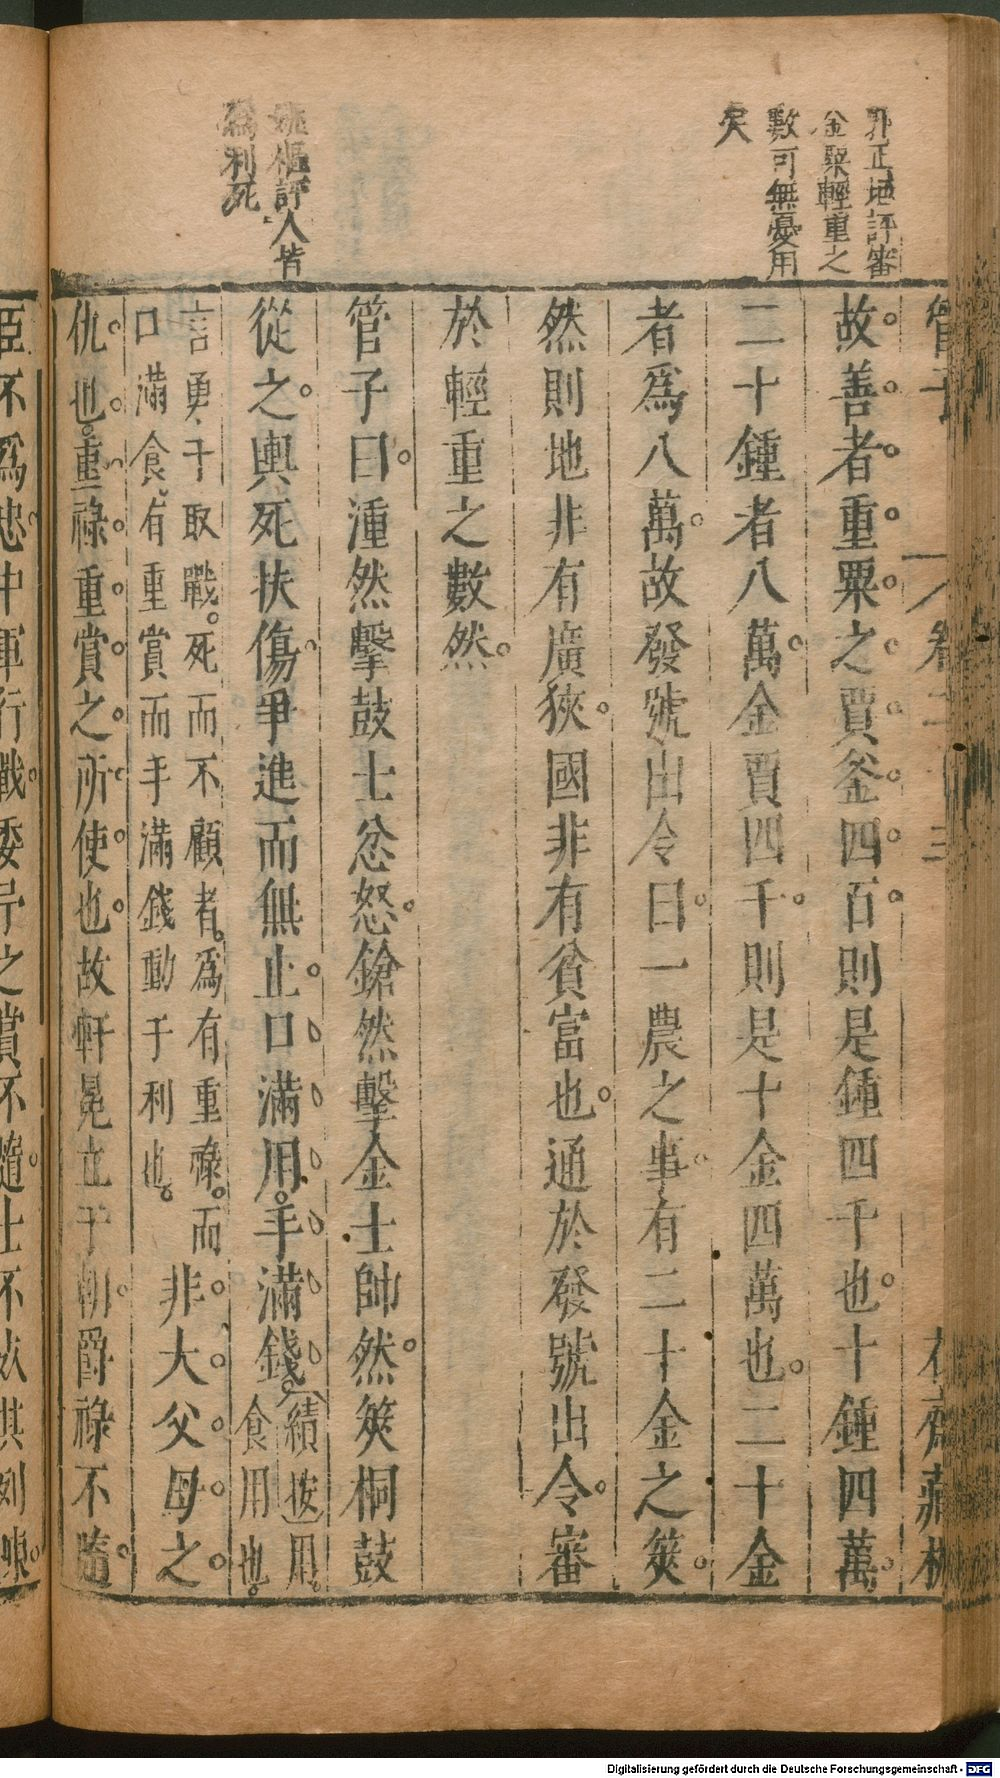 郭正域評審
金粟輕重之
數可無憂用
矣
故善者重粟之賈釜四百則是鍾四千也十鍾四萬
二十鍾者八萬金賈四千則是十金四萬也二十金
者爲八萬故發號出令曰一農之事有二十金之筴
然則地非有廣狹國非有貧富也通於發號出令審
於輕重之數然
姚樞評人皆
爲利死
管子曰湩然擊鼓士忿怒鎗然擊金士帥然筴桐鼓
從之輿死扶傷爭進而無止口滿用手滿錢
績按用
食用也
言勇于取戰死而不顧者爲有重祿而
口滿食有重賞而手滿錢動于利也
非大父母之
仇也重祿重賞之所使也故軒冕立于朝爵祿不隨
臣不爲忠中軍行戰委予之賞不隨士不死其列陳
Digitalisierung gefördert durch die Deutsche Forschungsgemeinschaft - DFG